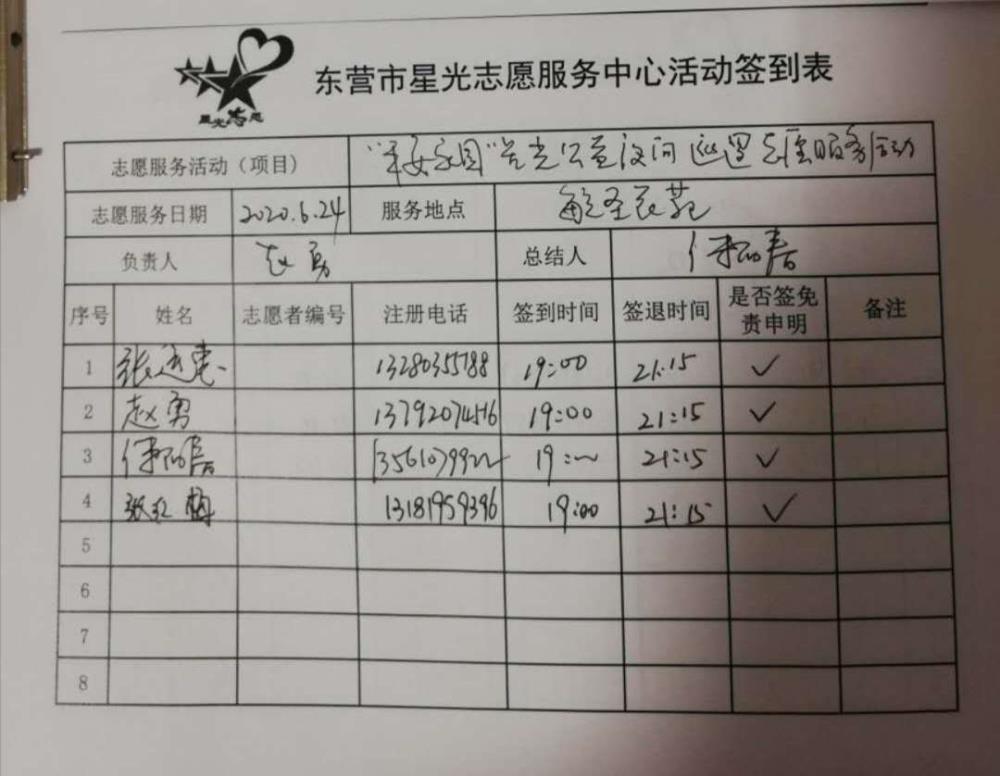 星光志愿
东营市星光志愿服务中心活动签到表
志愿服务活动（项目） "平安家园"星光公益夜间巡逻志愿服务活动
志愿服务日期 2020.6.24 服务地点
负责人 赵勇 总结人
序号 姓名 志愿者编号 注册电话 签到时间 签退时间 是否签免责申明 备注
1 13280355188 19:00 21:15 ✓
2 赵勇 19:00 21:15 ✓
3 21:15 ✓
4 张红梅 13181959396 19:00 21:15 ✓
5
6
7
8